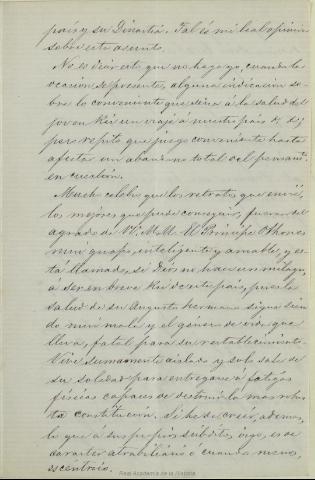 país y su Dinastía. Tal es mi leal opinión
sobre este asunto.
No es decir esto que no haga yo, cuando la
ocasion se presente, alguna indicacion so-
bre lo conveniente que seria á la salud del
joven Rey un viaje á nuestro país &. &;
pero repito que juzgo conveniente hasta
afectar un abandono total del pensamto.
en cuestión.
Mucho celebro que los retratos que envié,
los mejores que pude conseguir, fueran del
agrado de SS. M.M. El Principe Othon es
muy guapo, inteligente y amable, y es-
tá llamado, si Dios no hace un milagro,
á ser en breve Rey de este país, pues la
salud de su Augusto hermano sigue sien-
do muy mala y el género de vida que
lleva, fatal para su restablecimiento.
Vive sumamente aislado y solo sale de
su soledad para entregarse á fatigas
físicas capaces de destruir la mas robus-
ta constitucion. Si he de creer, ademas,
lo que á sus propios súbditos oigo, es de
carácter atrabiliario ó cuando menos,
escéntrico.
Real Academia de la Historia